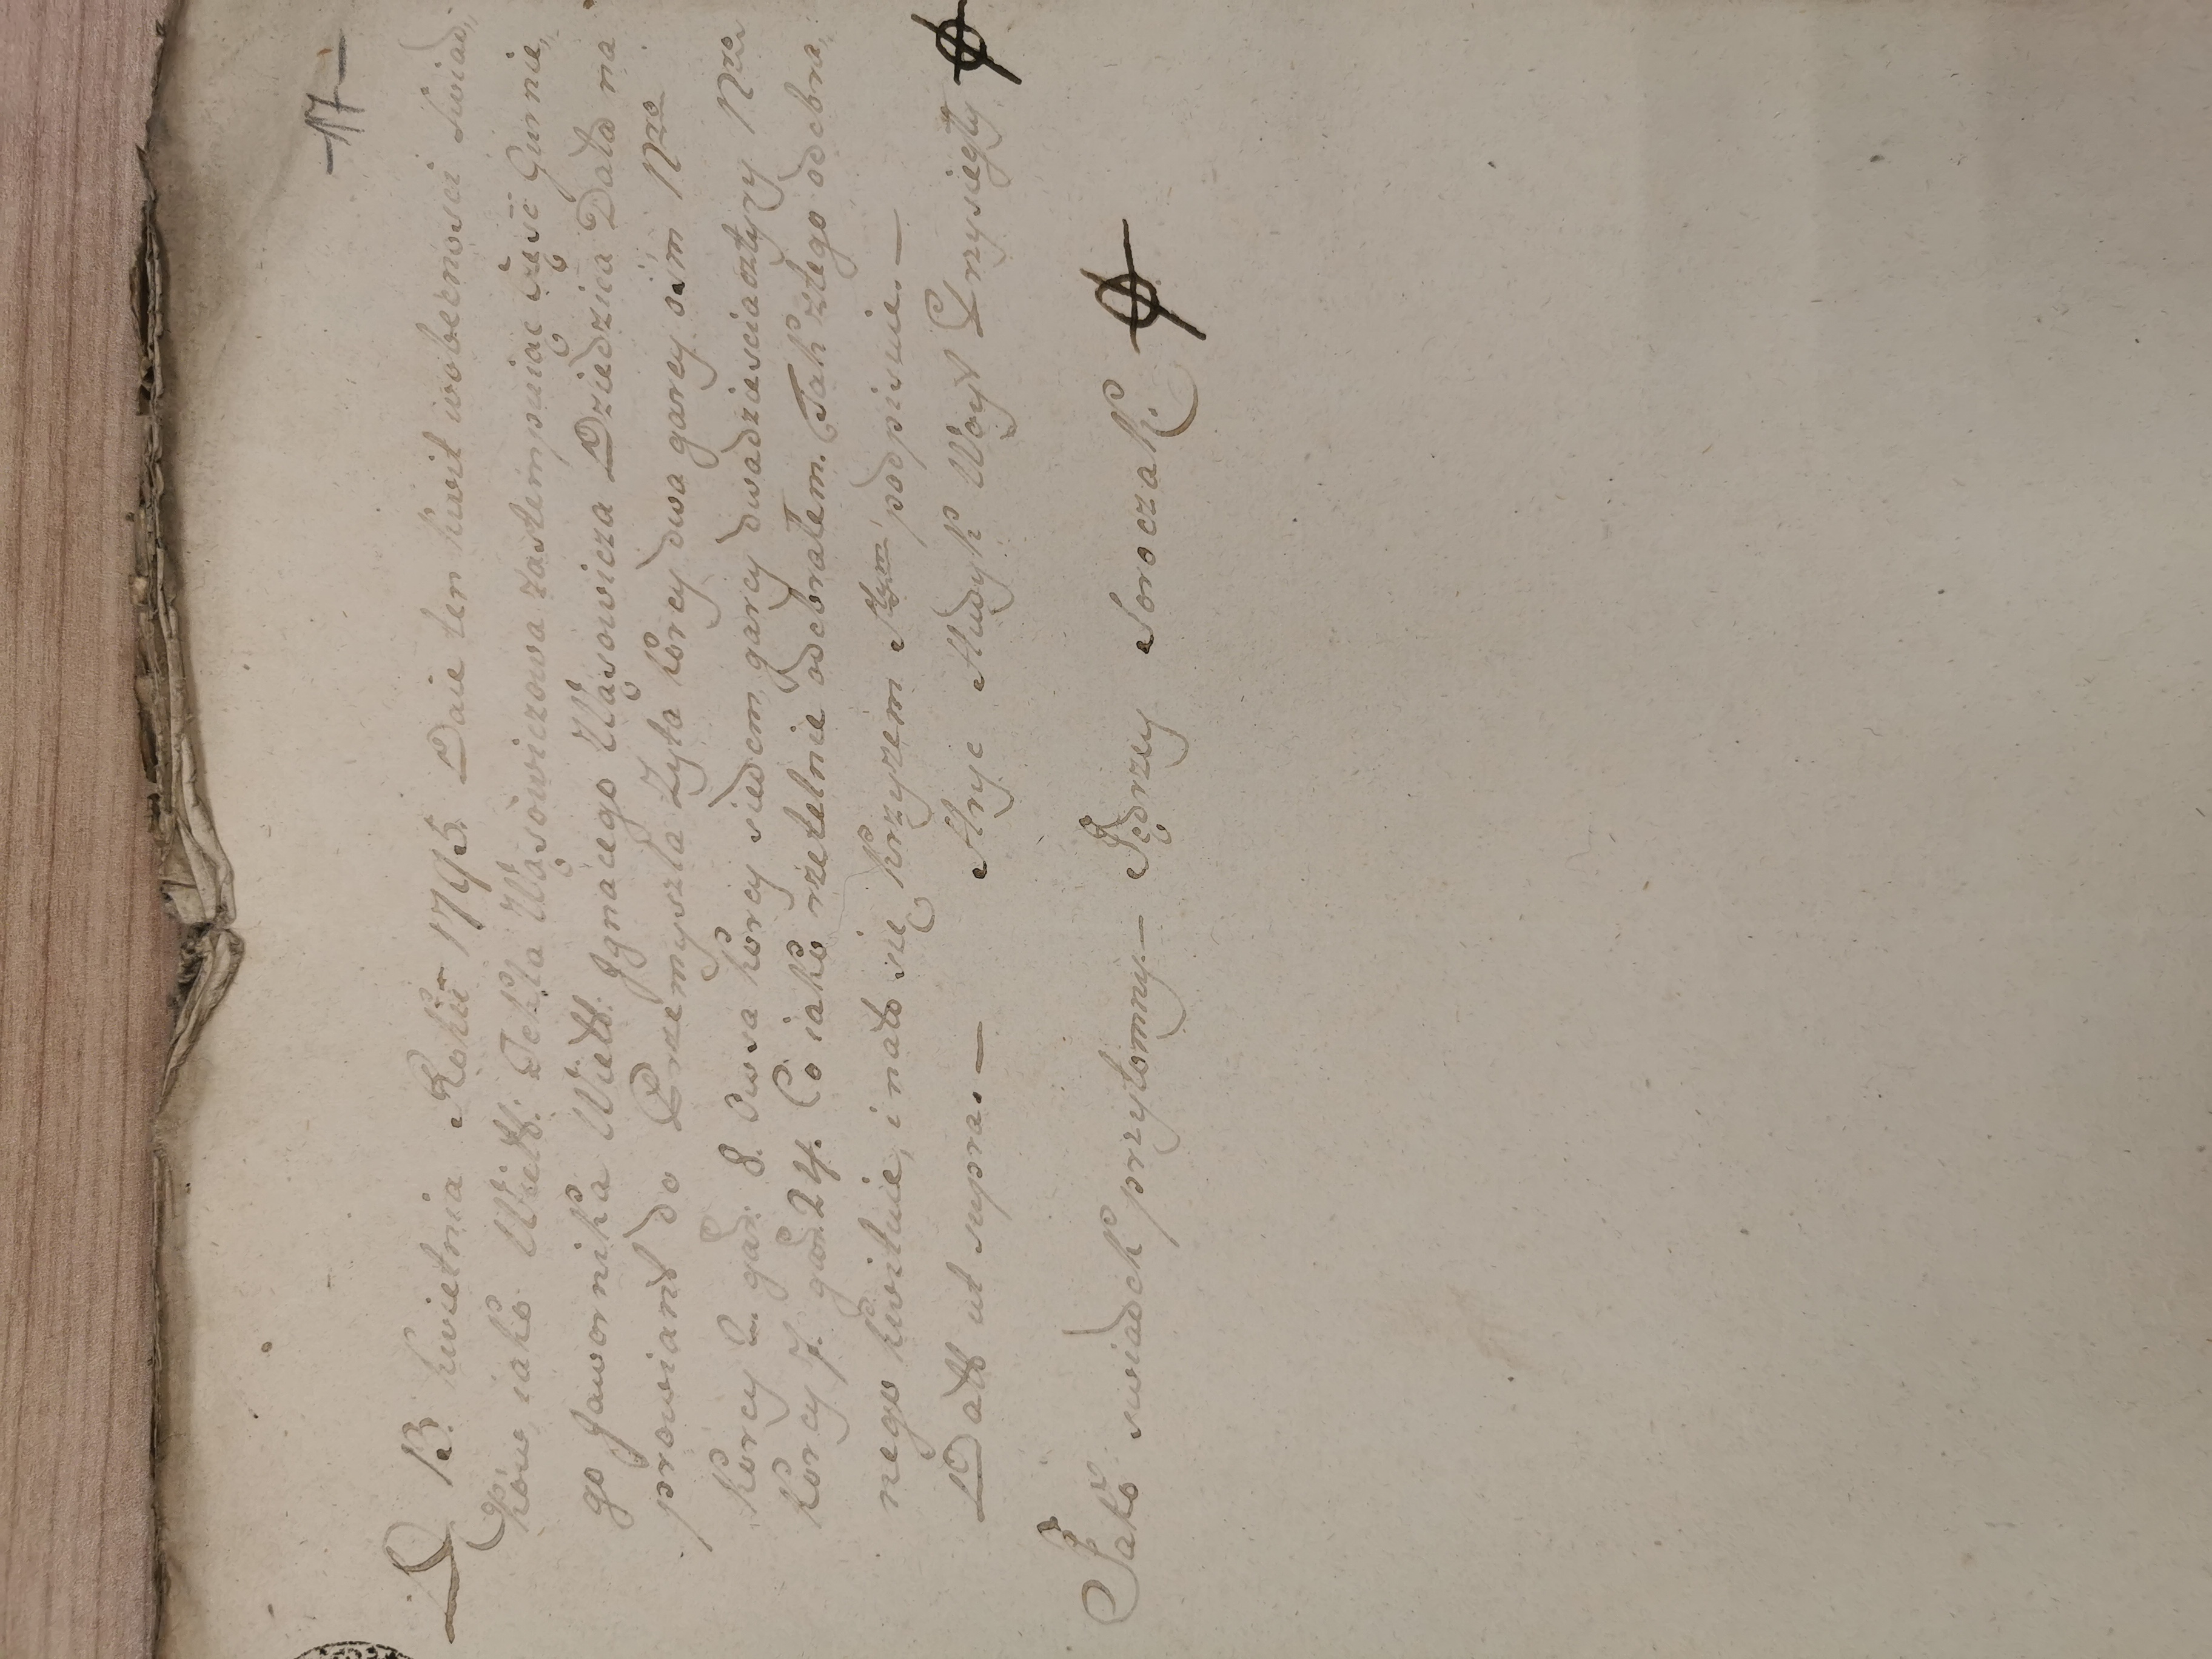 -17-
D 13. kwietnia Roku 1795. Daie ten kwit w obecnosci swiad„
ków, iako Wielb: Tekla Wąsowiczowa zastempuiąc częsć Gurnie„
go Jawornika Wielb. Jgnacego Wąsowicza Dziedzica Dała na
prowiant do Przemyszla Zyta korcy dwa garcy osm Nro
korcy 2. gar. 8. Owsa korcy siedem garcy dwadziescia cztyry Nro
korcy 7. gar. 24. Co iako rzetelnie odebrałem. Tak z tego odebra„
nego kwituie, i na to się krzyzem S. podpisuie.—
Datt ut supra.— Hryc Hudyk Woyt Przysięgły
Jako swiadek przytomny— Jędrzey Soroczak.